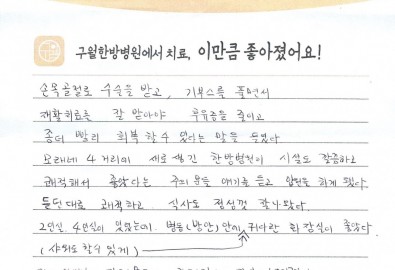 구월한방병원에서 치료, 이만큼 좋아졌어요!
손목골절로 수술을 받고, 기부스를 풀면서
재활치료를 잘 받아야 후유증을 줄이고
좀더 빨리 회복 할수 있다는 말을 들었다
모래내 4거리에 새로 생긴 한방병원이 시설도 깔끔하고
쾌적해서 좋았다는 주위 분들 얘기를 듣고 입원을 하게 됐다.
듣던대로 쾌적하고 식사도 정성껏 잘 나왔다.
2인실, 4인실이 있었는데. 병동(방안) 안에 커다란 화장실이 좋았다
(샤워도 할수 있게)